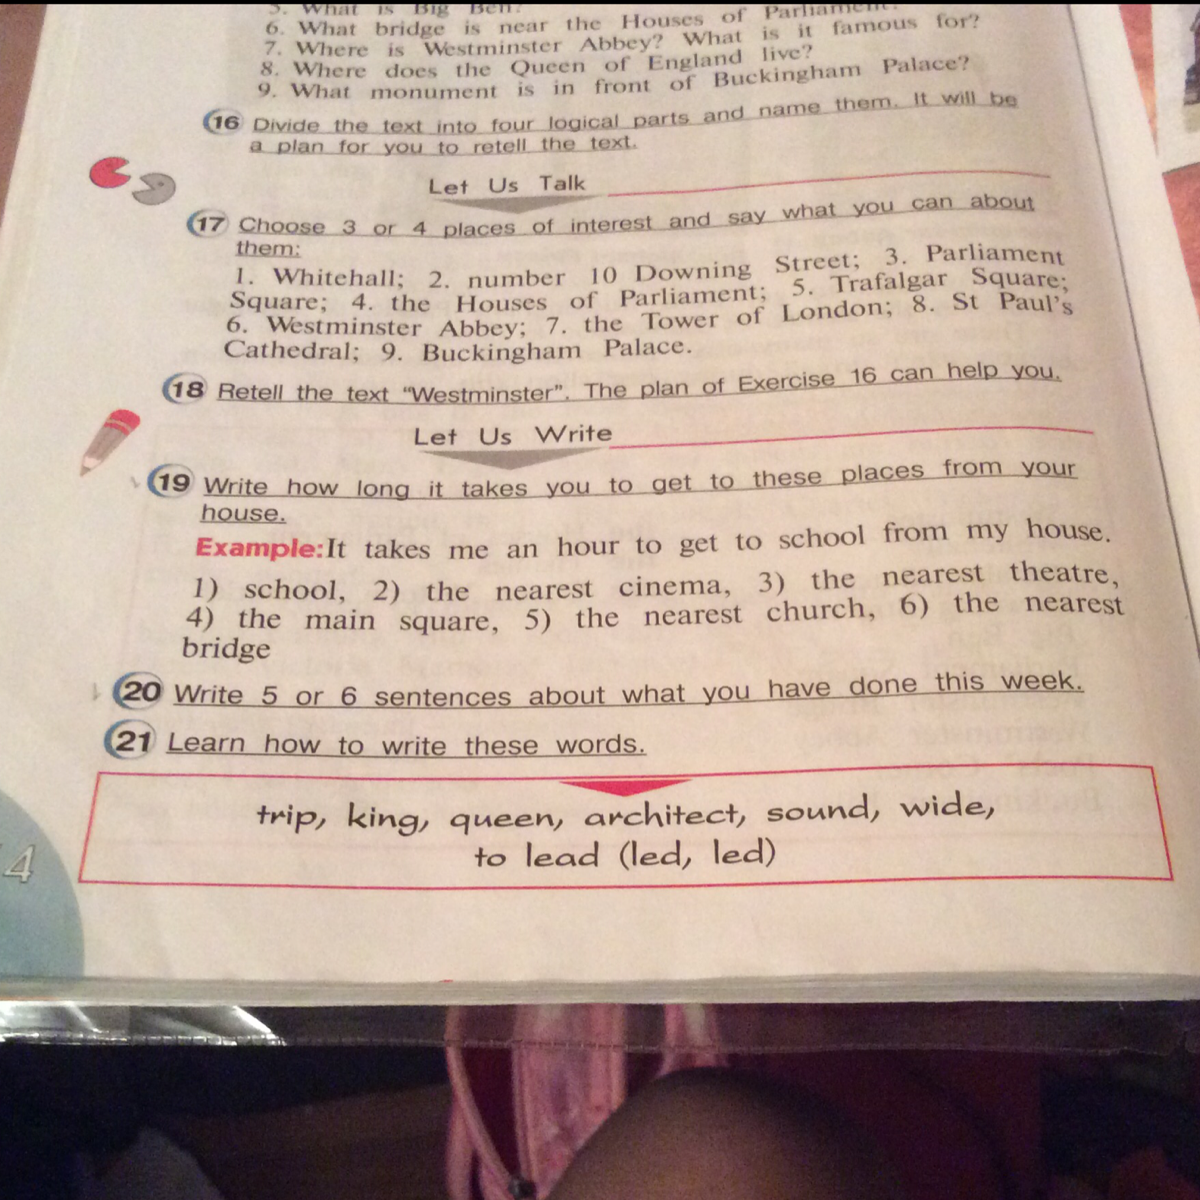 5. What is Big Ben?
6. What bridge is near the Houses of Parliament?
7. Where is Westminster Abbey? What is it famous for?
8. Where does the Queen of England live?
9. What monument is in front of Buckingham Palace?
16 Divide the text into four logical parts and name them. It will be
a plan for you to retell the text.
Let Us Talk
17 Choose 3 or 4 places of interest and say what you can about
them:
1. Whitehall; 2. number 10 Downing Street; 3. Parliament
Square; 4. the Houses of Parliament; 5. Trafalgar Square;
6. Westminster Abbey; 7. the Tower of London; 8. St Paul's
Cathedral; 9. Buckingham Palace.
18 Retell the text “Westminster”. The plan of Exercise 16 can help you.
Let Us Write
19 Write how long it takes you to get to these places from your
house.
Example: It takes me an hour to get to school from my house.
1) school, 2) the nearest cinema, 3) the nearest theatre,
4) the main square, 5) the nearest church, 6) the nearest
bridge
20 Write 5 or 6 sentences about what you have done this week.
21 Learn how to write these words.
trip, king, queen, architect, sound, wide,
to lead (led, led)
4